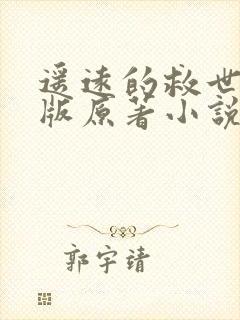 遥远的救世
版原著小說
郭宇靖